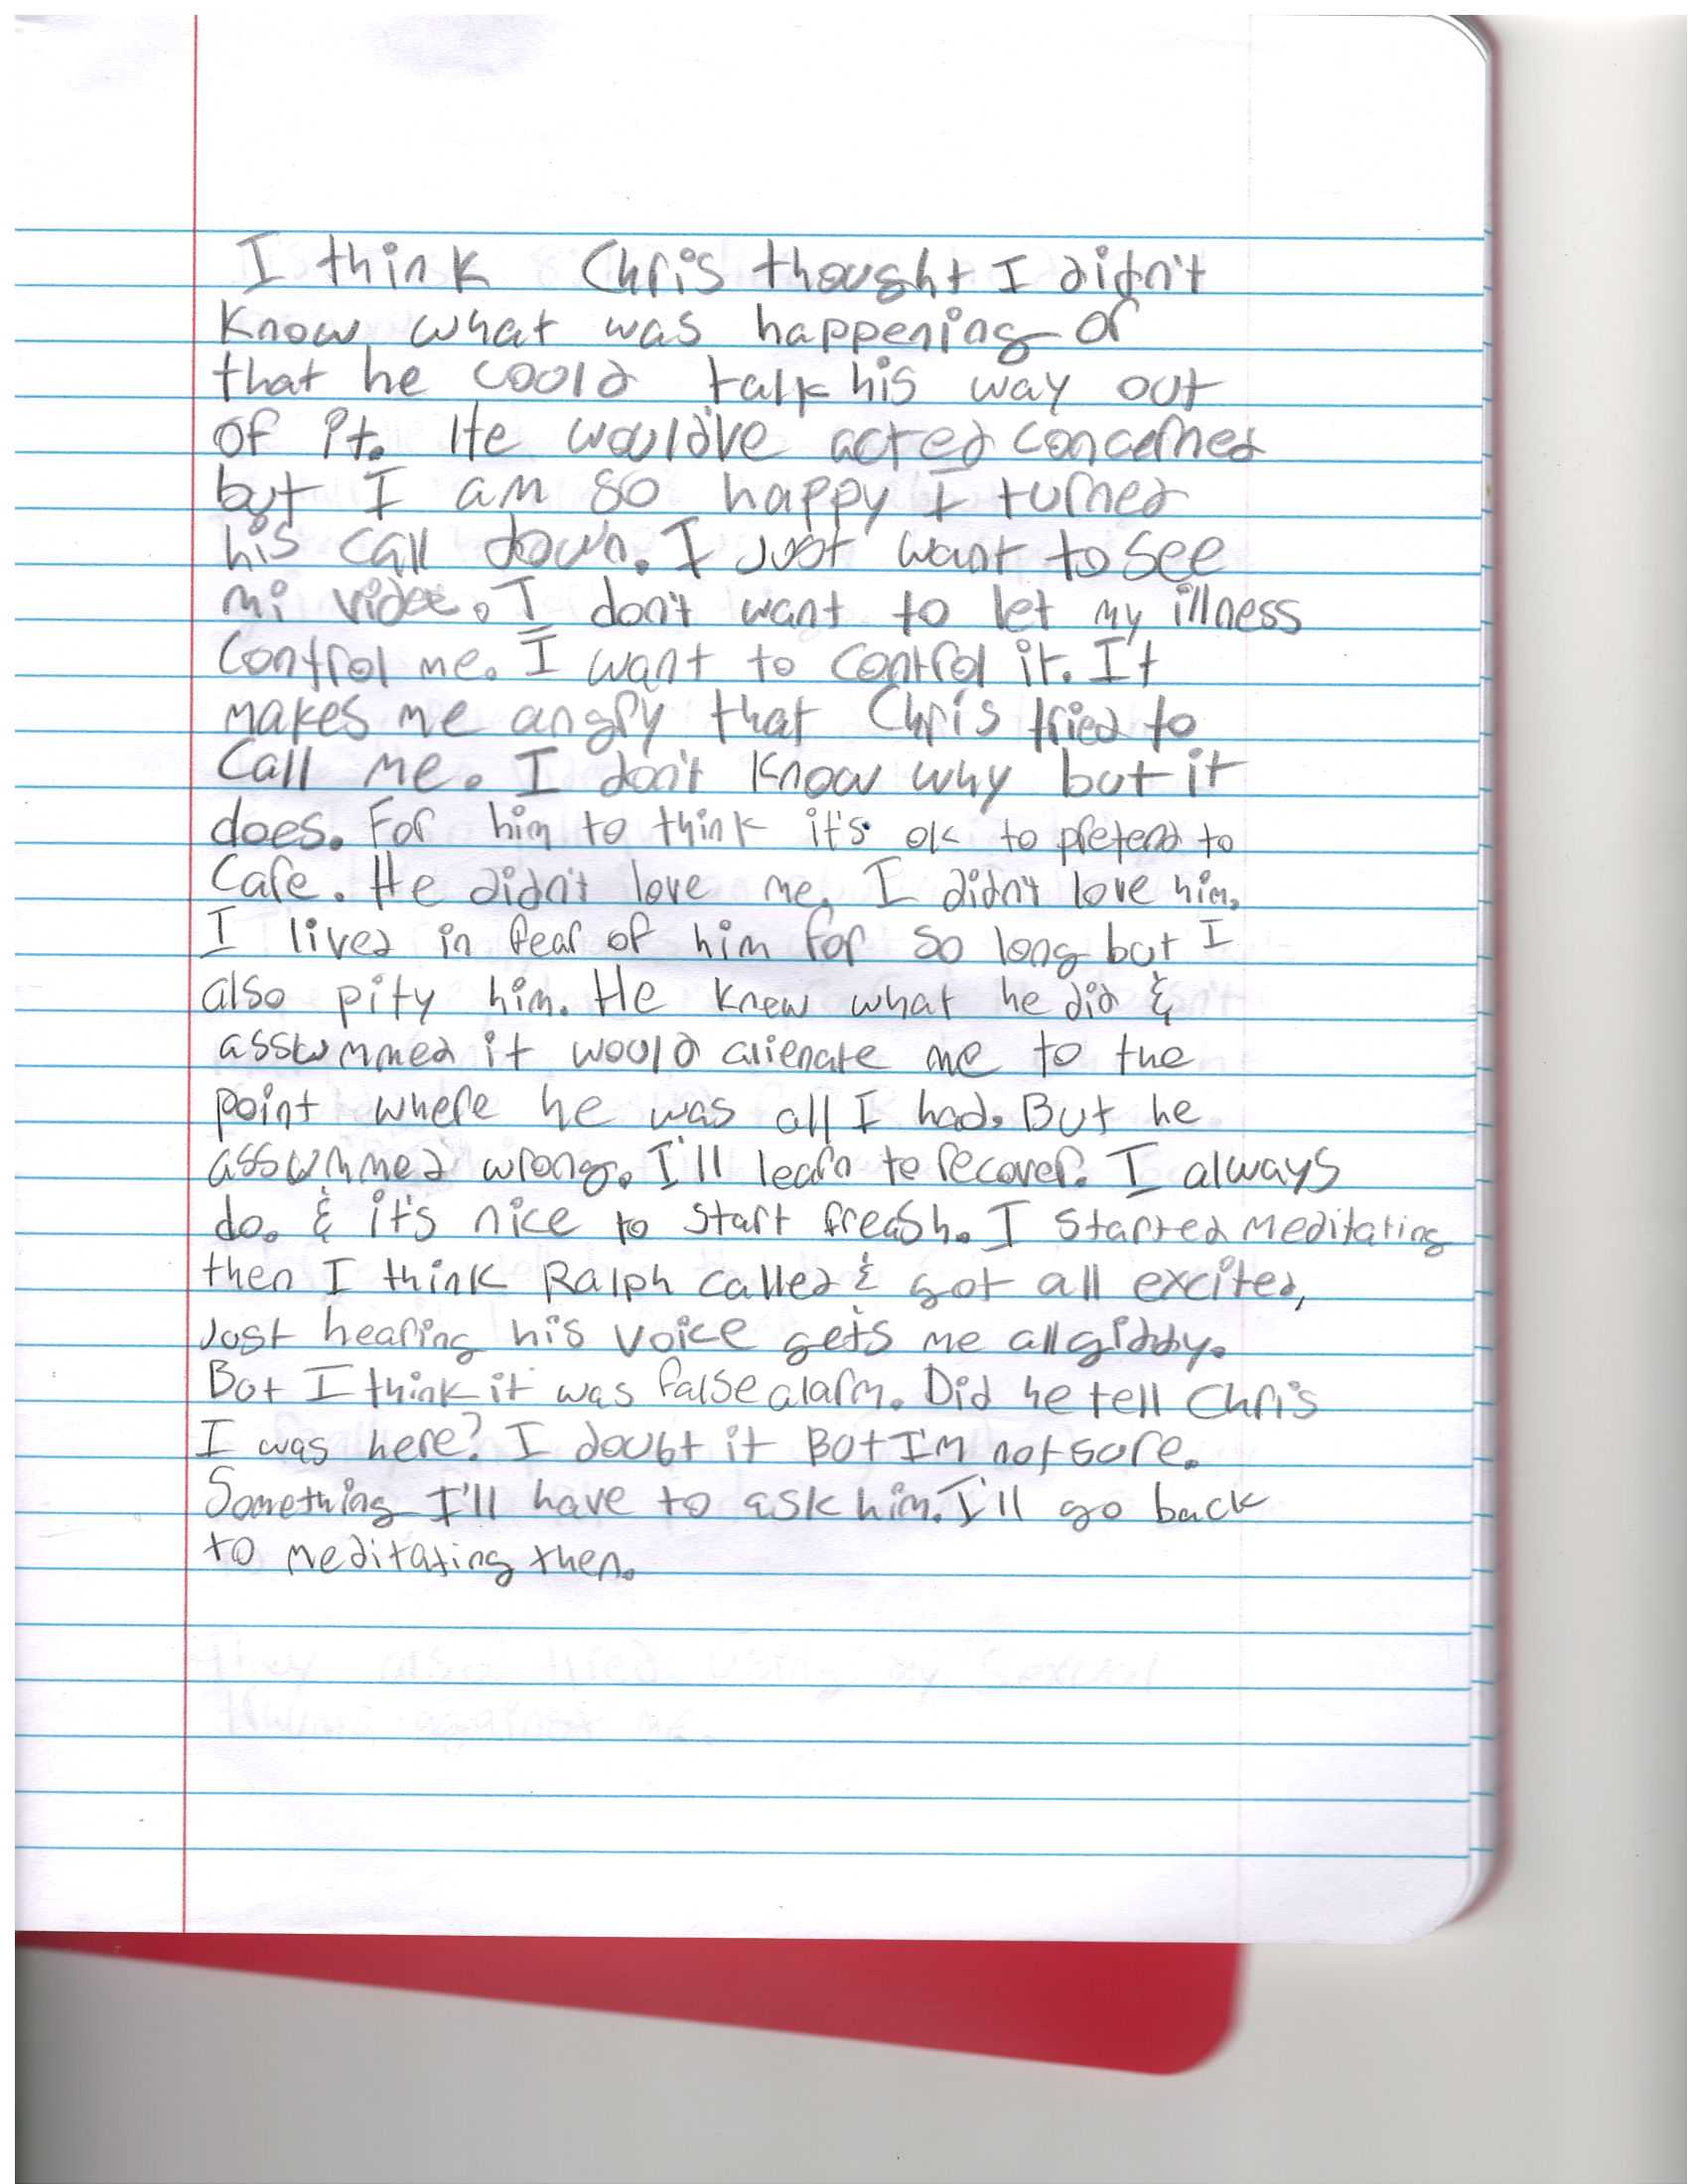 I think Chris thought I didn't
know what was happening or
that he coold talk his way out
of it. He would've acted concerned
but I am so happy I turned
his call down. I Just want to see
mi I don't want to let my illness
control me. I want to control it. It
makes me angry that Chris tried to
Call me. I don't know why but it
does. For him to think it's ok to pretend to
Care. He didn't love me. I didn't love him.
I lived in fear of him for so long but I
also pity him. He knew what he did &
assummed it would alienate me to the
point where he was all I had. But he
assummed wrong. I'll learn to recover. I always
do. & it's nice to start freash. I started meditating
then I think Ralph called & got all excited,
Just hearing his voice gets me all giddy.
But I think it was false alarm. Did he tell Chris
I was here? I doubt it But I'm not sure.
Something I'll have to ask him. I'll go back
to meditating then.